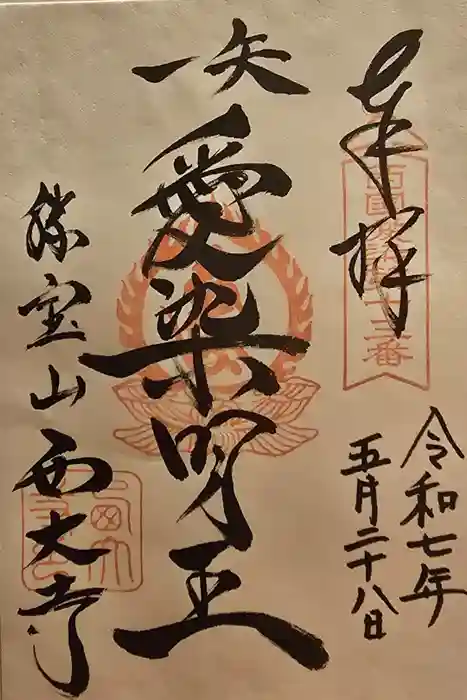 奉拝
西國愛染第十三番
令和七年
五月二十八日
一矢
愛染明王
勝宝山
西大寺